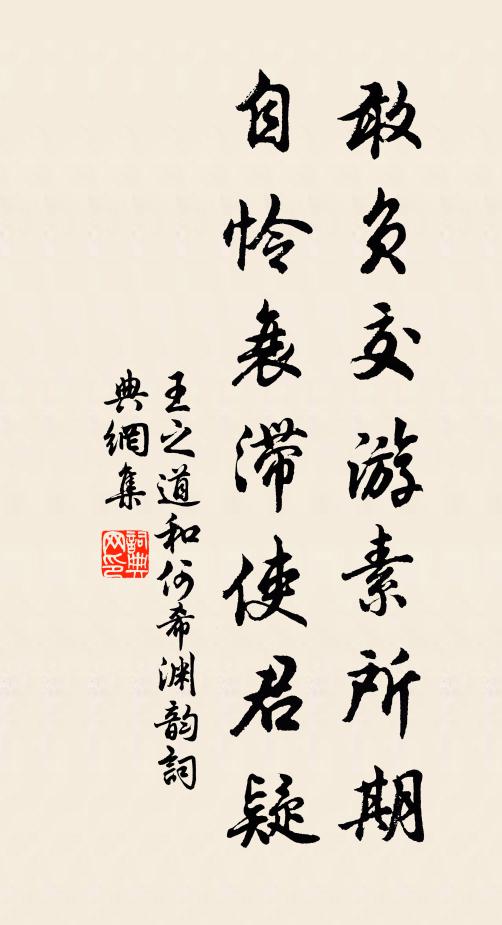 敢负交游素所期
自怜衰滞使君疑
王之道和何希渊韵词
典網集
詞典网印